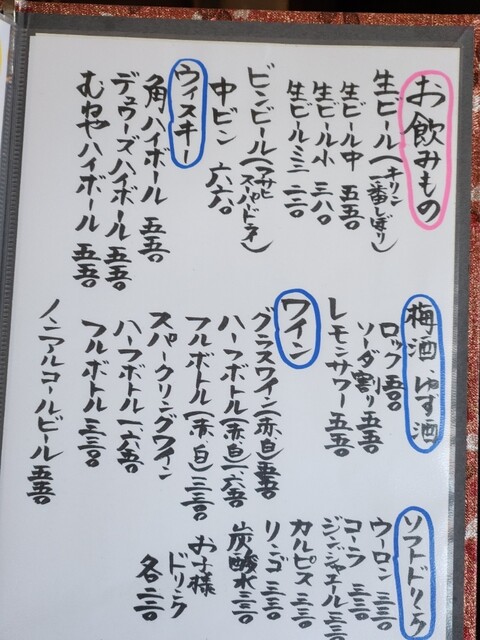 お飲みもの
生ビール(キリン一番しぼり)
生ビール中 五五〇
生ビール小 三八〇
生ビールミニ 二二〇
ビンビール(アサヒスーパードライ)
中ビン 六六〇
ウィスキー
角ハイボール 五五〇
デュワーズハイボール 五五〇
むねやハイボール 五五〇
梅酒、ゆず酒
ロック 五五〇
ソーダ割り 五五〇
レモンサワー 五五〇
ワイン
グラスワイン(赤、白) 五五〇
ハーフボトル(赤、白) 一、六五〇
フルボトル(赤、白) 三三〇〇
スパークリングワイン
ハーフボトル 一、六五〇
フルボトル 三三〇〇
ノンアルコールビール 五五〇
ソフトドリンク
ウーロン 三三〇
コーラ 三三〇
ジンジャエール 三三〇
カルピス 三三〇
リンゴ 三三〇
炭酸水 三三〇
お子様
ドリンク
各二二〇